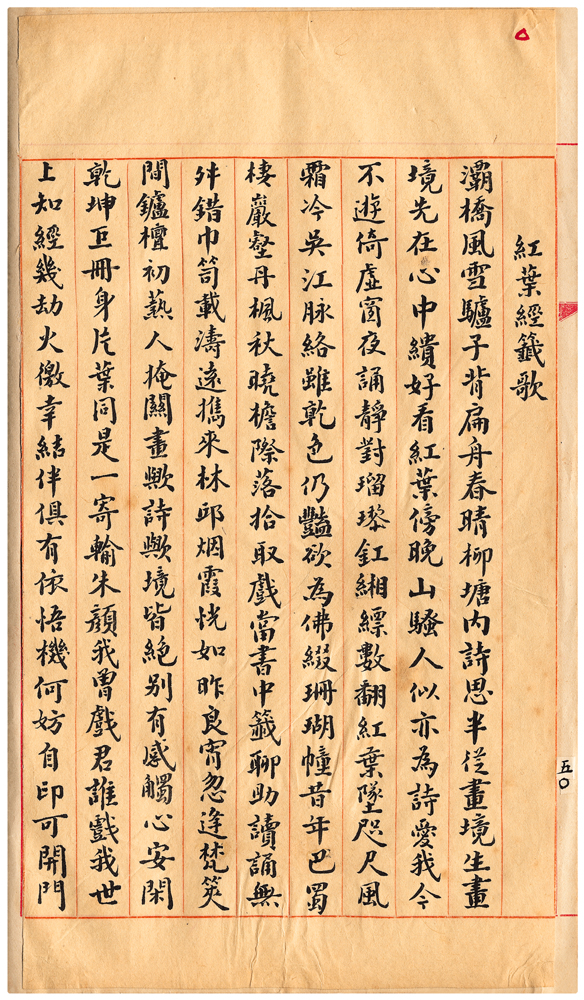 紅葉經籤歌
灞橋風雪驢子背扁舟春晴柳塘內詩思半從畫境生畫
境先在心中繢好看紅葉傍晚山騷人似亦為詩愛我今
不遊倚虛窗夜誦靜對瑠璨釭緗縹數翻紅葉墜咫尺風
霜冷吳江脉絡雖乾色仍豔欲為佛綴珊瑚幢昔年巴蜀
棲巖壑丹楓秋曉檐際落拾取戲當書中籤聊助讀誦無
舛錯巾笥載濤遠擕來林邱烟霞恍如昨良宵忽逢梵筴
間鑪檀初爇人掩關畫歟詩歟境皆絕別有感觸心安閑
乾坤巨冊身片葉同是一寄輸朱顏我曾戲君誰戲我世
上知經幾劫火徼幸結伴俱有依悟機何妨自印可開門
五〇